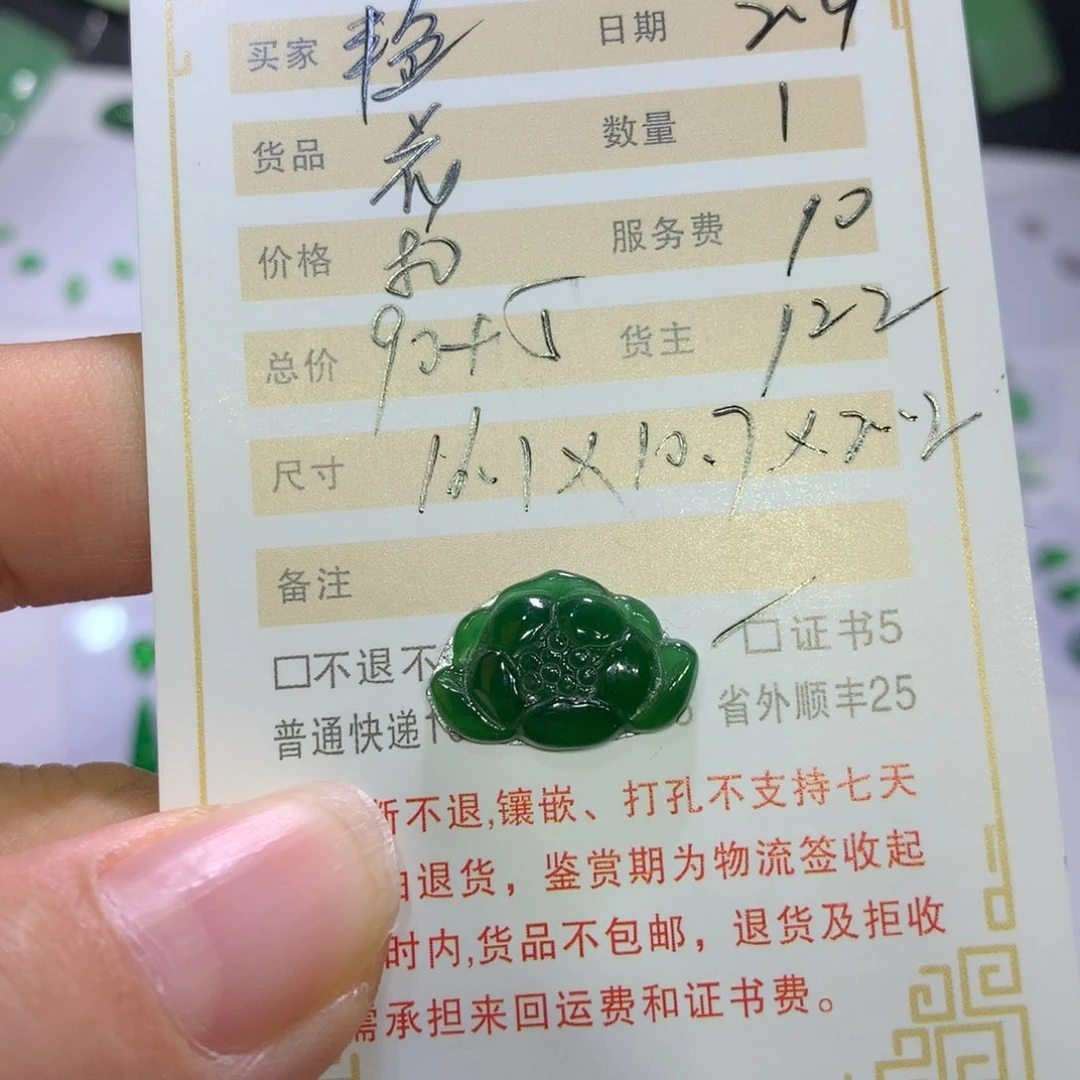 买家 日期 2.9
货品 花 数量 1
价格 80 服务费 10
总价 90+5 货主 122
尺寸 16.1×10.7×2.2
备注
□不退不 □证书5
普通快递1 省外顺丰25
不退,镶嵌、打孔不支持七天
由退货，鉴赏期为物流签收起
时内,货品不包邮，退货及拒收
需承担来回运费和证书费。